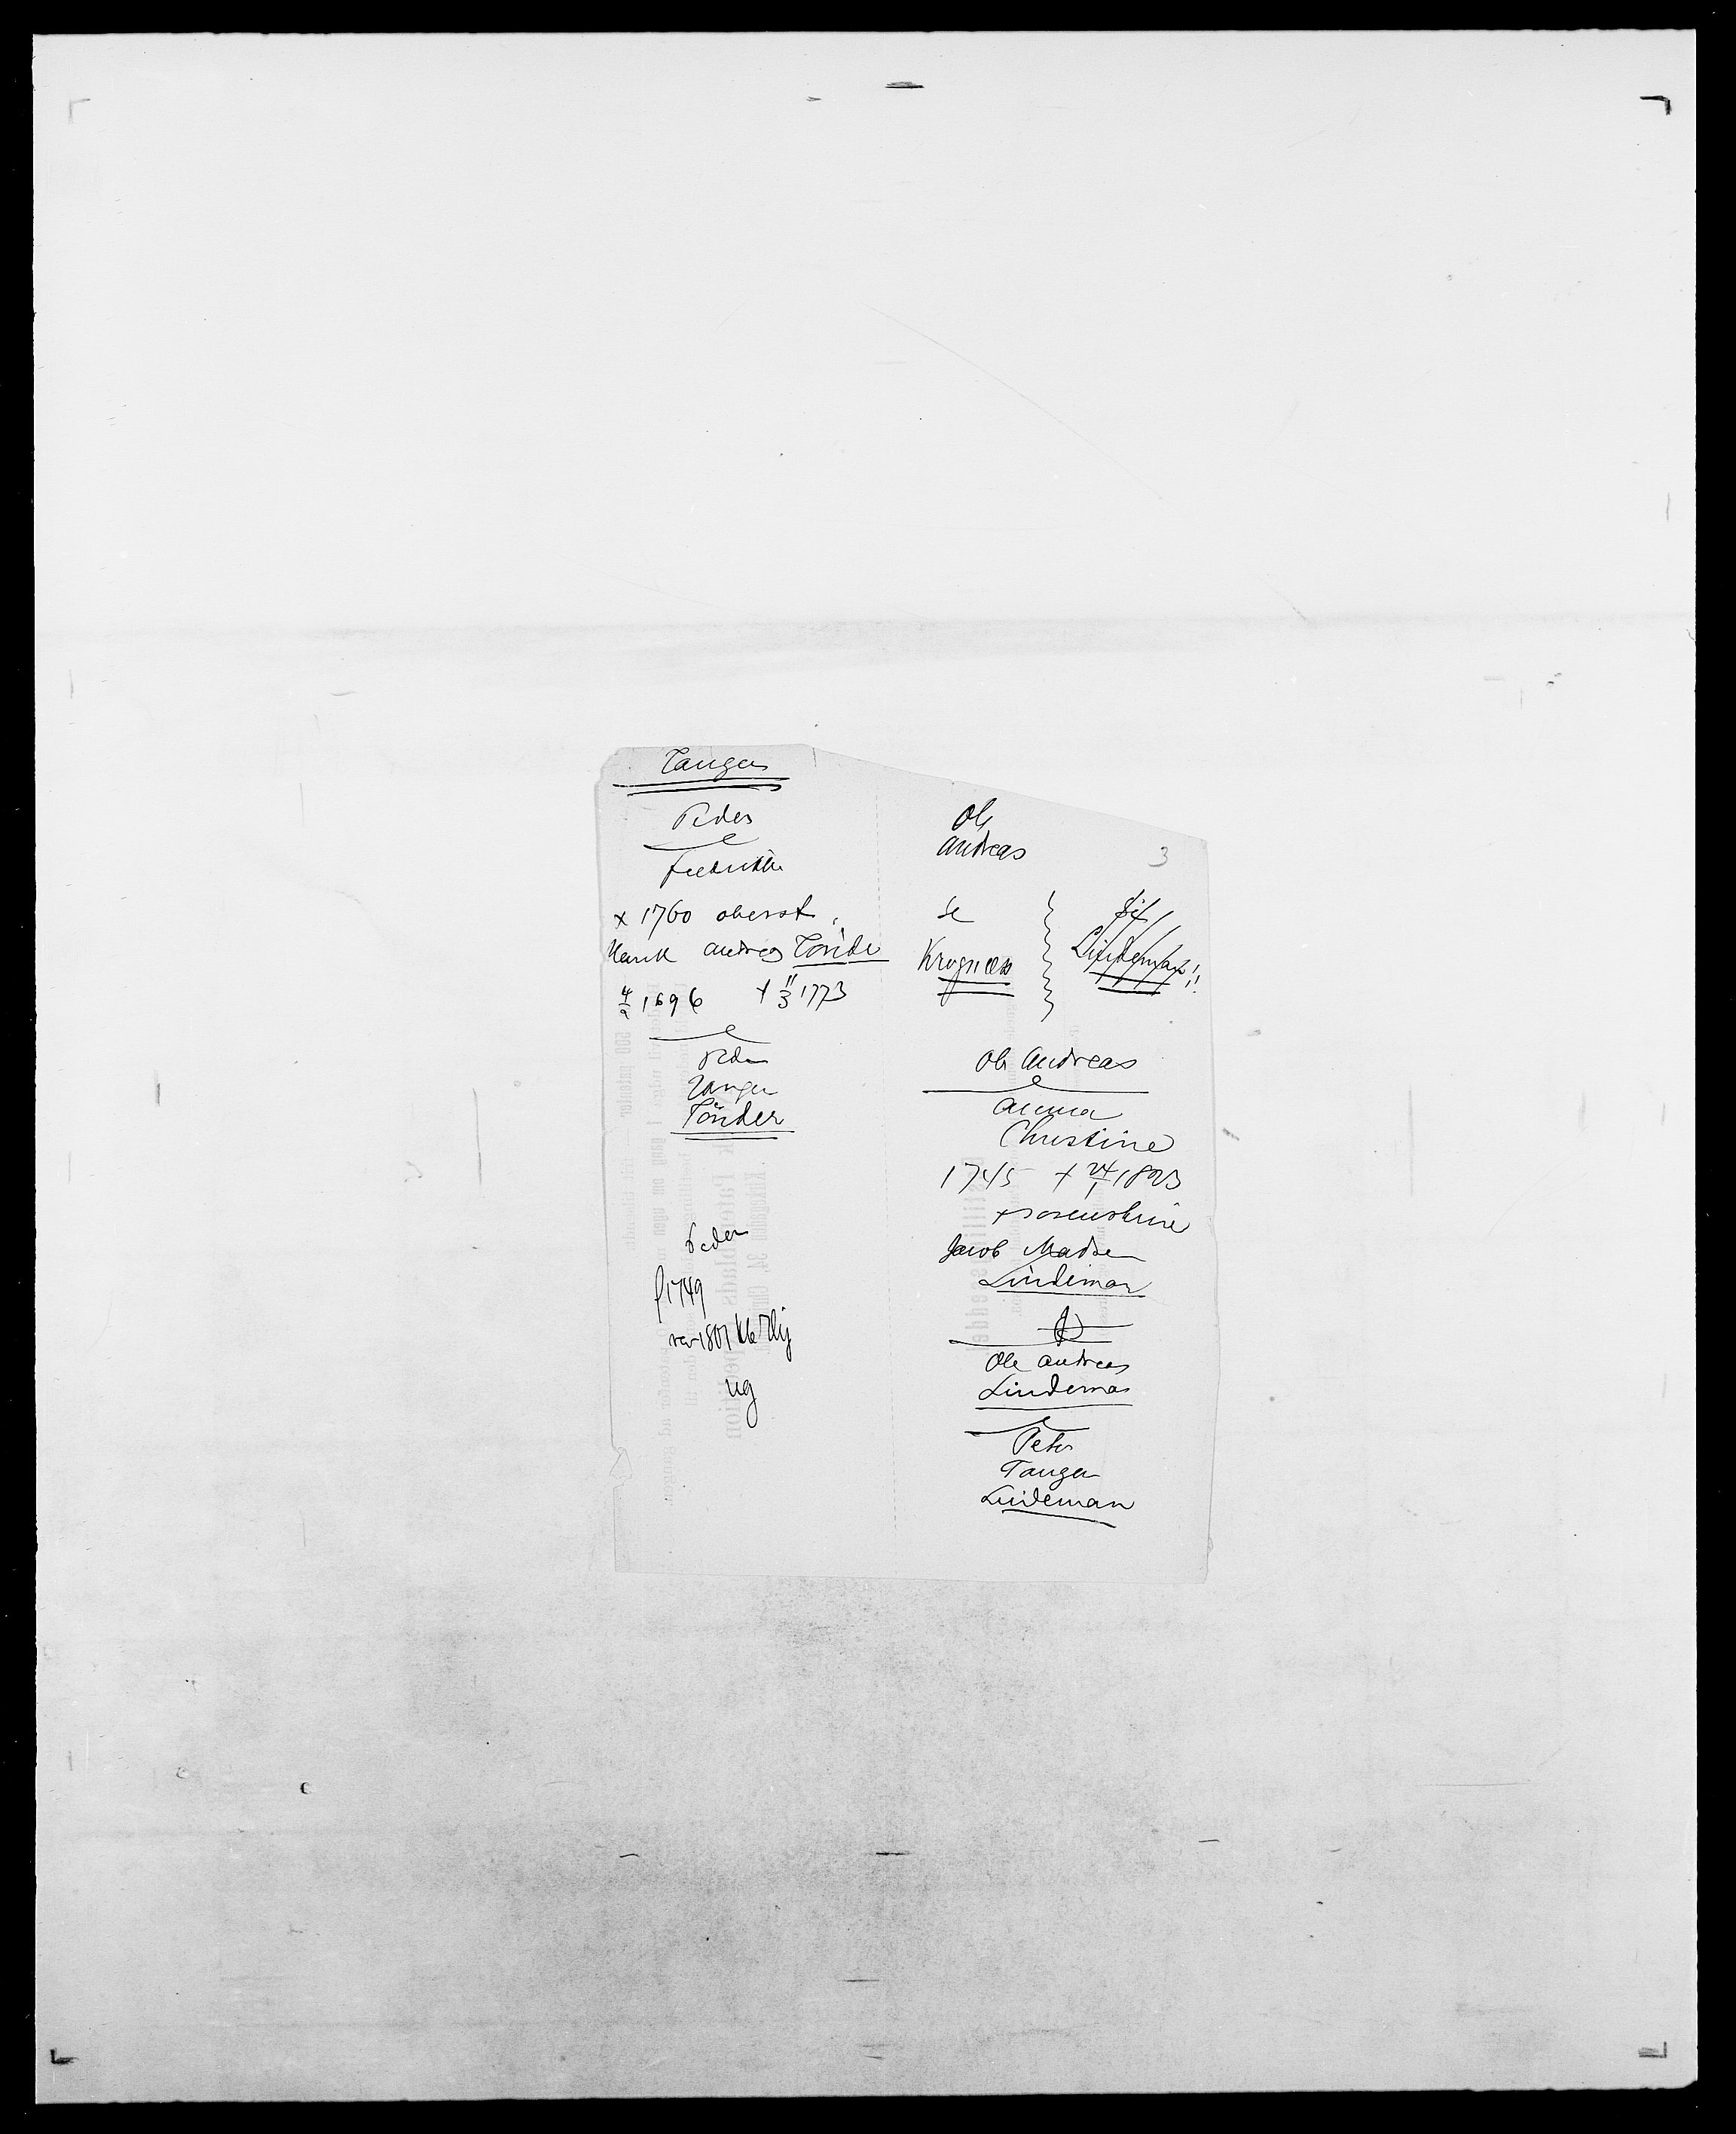 Tangen
Peder
x 1760 oberst
Henrik Andreas Tønder
4/2 1696 + 11/3 1773
Peder
Tangen
Tönder
Peder
f 1749
ug
Ole
Andreas
3
se
Krognæss
Lindeman!!
Ole Andreas
Anna
Christine
1745 + 24/1 1823
x sorenskriver
Jacob Madsen
Lindeman
Ole Andreas
Lindeman
Peter
Tangen
Lindeman